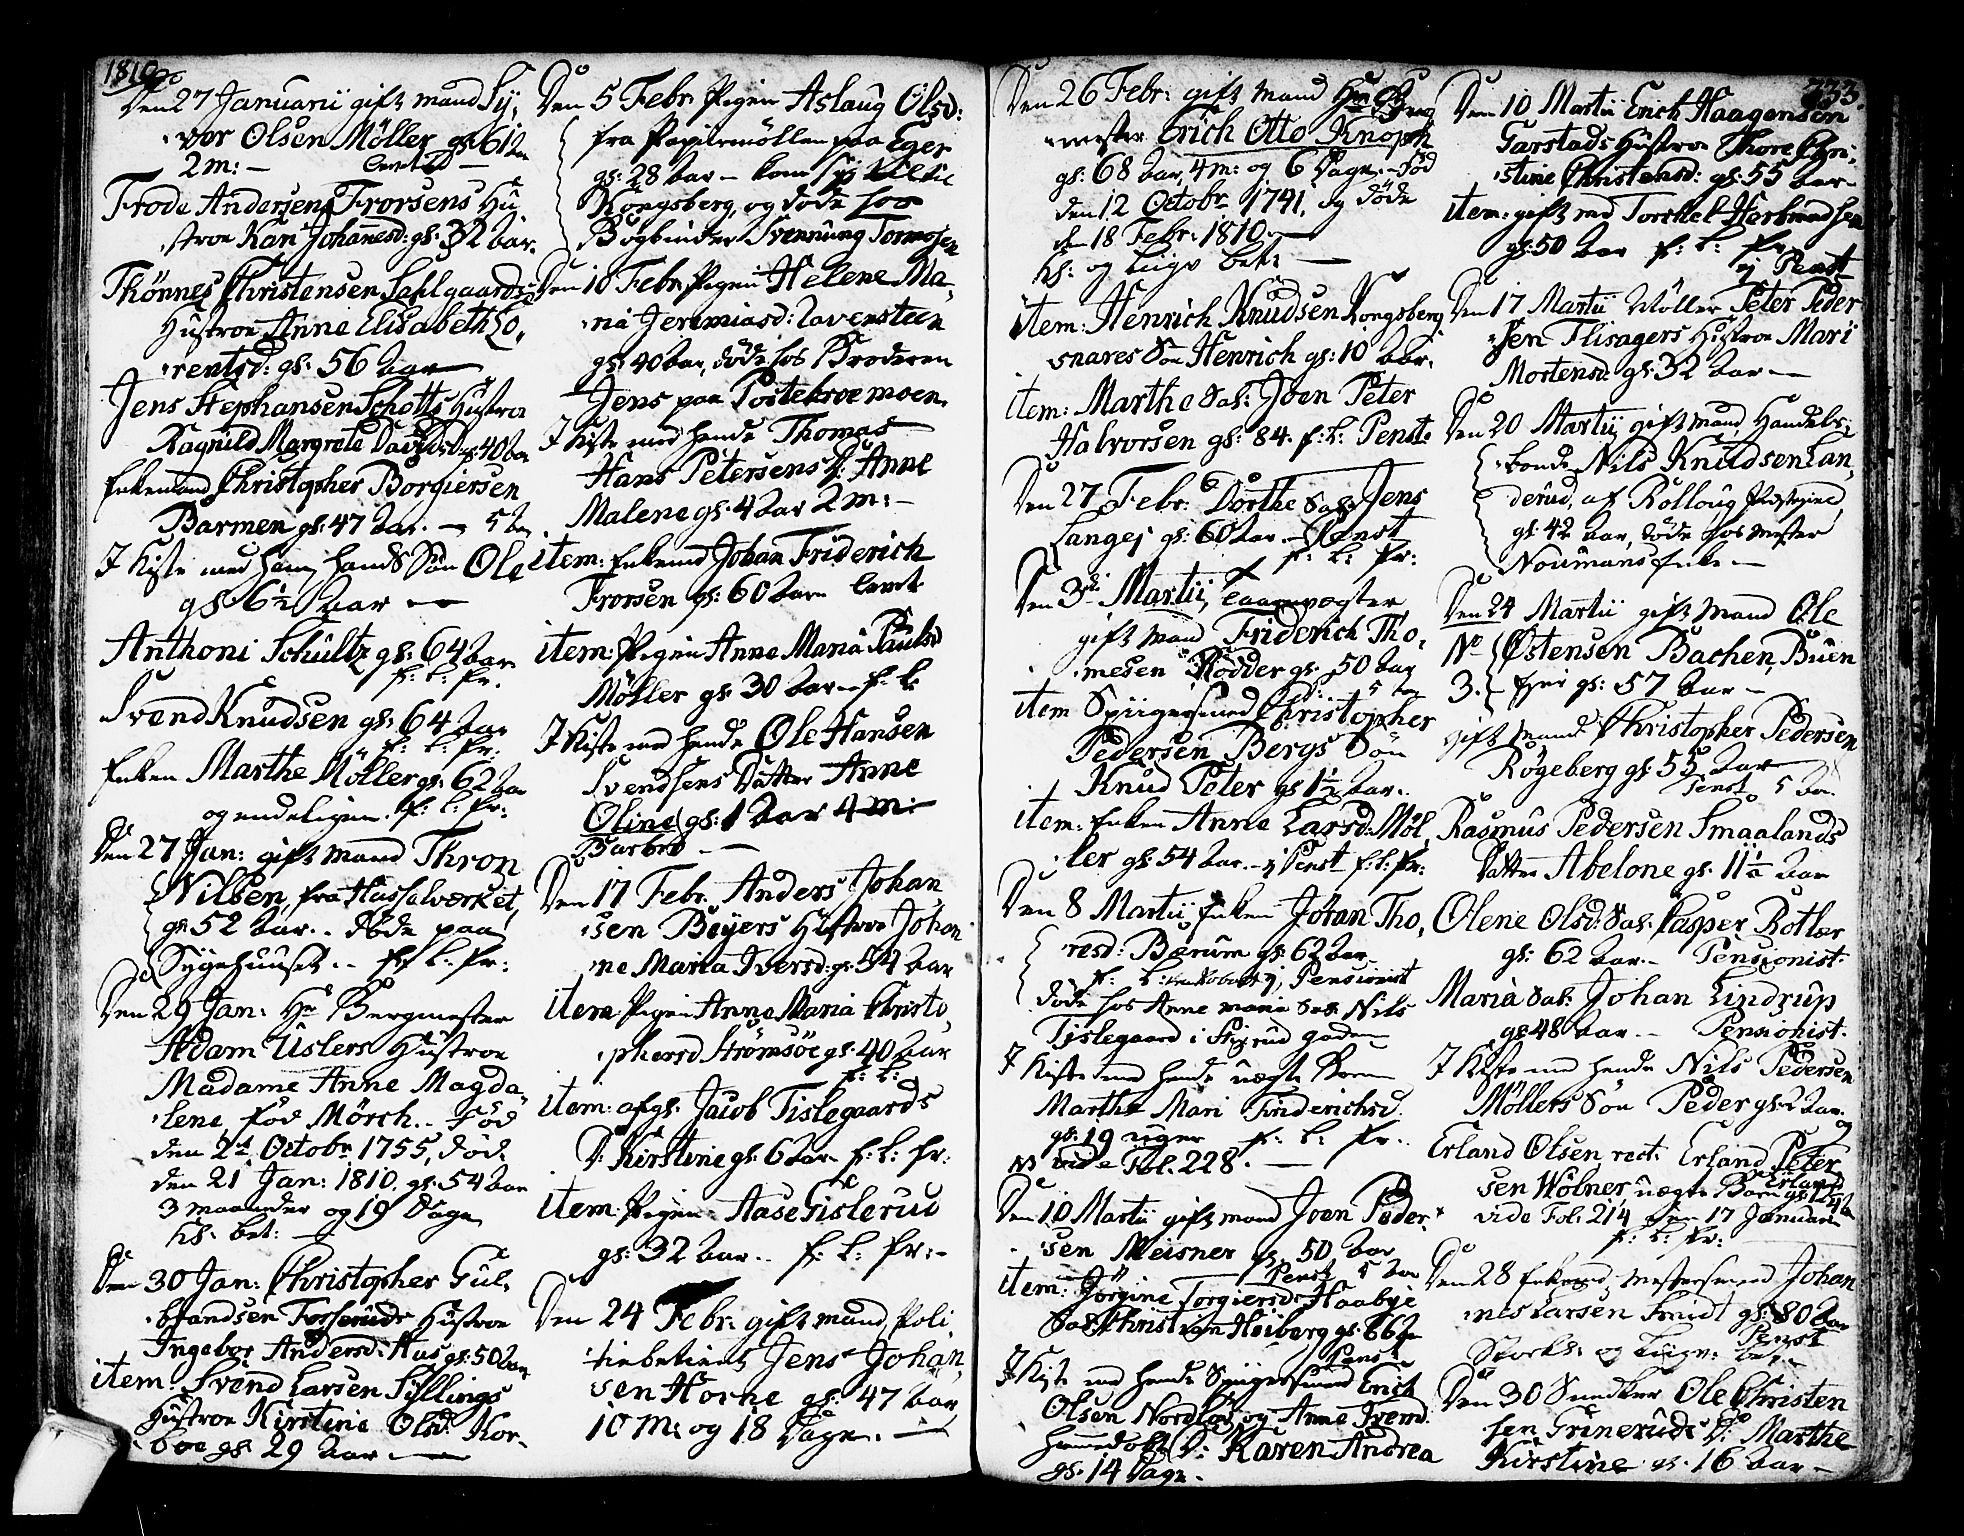 1810
Den 27 Januarii gift mand Sy,
vor Olsen Möller gl: 61 aar
2 m: —
Frode Andersens Frorsens Hu
stroe Kari Johannesd: gl: 32 aar.
Thönnes Christensen Sahlgaards
Hustroe Anne Elisabeth Lo,
rentsd: gl: 56 aar
Jens Stephansen Schotts Hustroe
Ragnild Margrete Davidsd: gl: 40 aar
Enkemand Christopher Borgiersen
Barmen gl: 47 aar. —
I Kiste med ham hans Sön Ole
gl: 6½ aar —
Anthoni Schültz gl: 64 aar
f: l: fr.
Svend Knudsen gl: 64 aar
f: l: fr:
Enken Marthe Möller gl: 62 aar
og endeligen. f: l: fr:
Den 27 Jan: gift mand Thron
Nilsen, fra Hasselværket,
gl: 52 aar. döde paa
Sygehuuset. f: l: fr:
Den 29 Jan: Hr Bergmester
Adam Üslers Hustroe
Madame Anne Magda,
lene, föd Mörch. Föd
den 2d Octobr 1755, död
den 21 Jan: 1810. gl: 54 aar
3 maaneder og 19 Dage
kl: bet:
Den 30 Jan: Christopher Gul,
brandsen Fosseruds Hustroe
Ingebor Andersd: Aas gl: 50 aar
item: Svend Larsen Syllings
Hustroe Kirstine Olsd: Kor-
boe gl: 29 aar —
Den 5 Febr: Pigen Aslaug Olsd:
fra Papiirmöllen paa Eger
gl: 28 aar — kom syg til
Kongsberg, og döde hos
Bogbinder Svennung Tormosen
Den 10 Febr: Pigen Helene Ma-
ria Jeremiasd: Lavensteen
gl: 40 aar, döde hos Broderen
Jens paa Postebroemoen.
I Kiste med hende Thomas
Hans Petersens D: Anne
Malene gl: 4 aar 2 m: —
item: Enkemd Johan Friderich
Frorsen gl: 60 aar
item: Pigen Anne Maria Paulsd
Möller gl: 30 aar — f: l:
I Kiste med hende Ole Hansen
Svendsens Datter Anne
Oline gl: 1 aar 4 m:
Barbro —
Den 17 Febr. Anders Johan
sen Beyers Hustroe Johan
ne Maria Iversd: gl: 54 aar
item Pigen Anne Maria Christo,
phersd Strömsöe gl: 40 aar
f: l:
item: afg: Jacob Tislegaards
D: Kirstine gl: 6 aar. f: l: fr:
item: Pigen Aase Gislerud
gl: 32 aar. f: l: fr: —
Den 24 Febr: gift mand, Poli
tiebetient Jens Johan,
sen Horne gl: 47 aar,
10 M: og 18 Dage. —
233.
Den 26 Febr: gift mand Hr Berg
mester Erich Otto Knoph
gl: 68 aar, 4 m: og 6 Dage. — föd
den 12 Octobr 1741, og döde
d 18 Febr: 1810. —
kl: og liigv bet: —
item: Henrich Knudsen Kongsberg
snares Sön Henrich gl: 10 aar.
item: Marthe Sal: Joen Peter
Halvorsen gl: 84. f: l: Penst:
Den 27 Febr: Dorthe Sal: Jens
Langes gl: 60 aar. Penst
f: l: fr:
Den 3die Martii,
gift mand Friderich Tho,
mesen Rödder gl: 50 aar
item Spiigersmed Christopher
Pedersen Bergs Sön
Knud Peter gl: 1½ aar.
item: Enken Anne Larsd: Möl,
ler gl: 54 aar. — ej Penst f: l: fr:
Den 8 Martii Enken Johan Tho,
resd: Bærum gl: 62 aar
Pensionist
döde hos Anne Marie Sal: Nils
Tislegaard i gaden
I Kiste med hende uægte Barn
Marthe Mari Friderichsd.
gl: 19 uger f: l: fr:
NB vide Fol. 228. —
Den 10 Martii gift mand Joen Peder
sen Meisner gl: 50 aar
Penst
item: Jörgine Torgiersd: Haabye
Sal: Christian Heiberg gl: 66 aar
Penst
I Kiste med hende Spiigersmed Erich
Olsen Nordlös og Anne Iversd.
D: Karen Andrea
gl: 14 Dage.
Den 10 Martii Erich Haagensen
Garstads Hustroe Thore Chri,
stine Christensd: gl: 55 aar —
item: gift md Torchel Herbrandsen
gl: 50 aar f: l: fr
ej Penst
Den 17 Martii Möller Peter Peder
sen Flisagers Hustroe Mari
Mortensd: gl: 32 aar —
Den 20 Martii gift mand, Handels-
bonde Nils Knudsen Lan,
derud, af Rolloug Præstegield,
gl: 42 aar, döde hos Mester
Noumans Enke —
Den 24 Martii gift mand Ole
No Östensen Bachen, Buen
3. Eger gl: 57 aar —
gift mand Christopher Pedersen
Rögeberg gl: 55 aar
Penst
Rasmus Pedersen Smaalands
Datter Abelone gl: 11½ aar
Olene Olsd: Sal: Casper Rotler
gl: 62 aar. — Pensionist.
Maria Sal: Johan Lindrup
gl: 48 aar. — Pensionist.
I Kiste med hende Nils Pedersen
Möllers Sön Peder gl: 2 aar.
og
Erland Olsen, rect: Erland Peter
sen Wölner uægte Barn
vide Fol: 214 den 17 Januarii
f: l: fr:
Den 28 Enkemd, Mestersmed Johan
nes Larsen Smidt gl: 80 aar
Penst
Storkl: og Liigv: bet.
Den 30 Snedker Ole Christen
sen Grineruds D: Marthe
Kirstine gl: 16 aar —